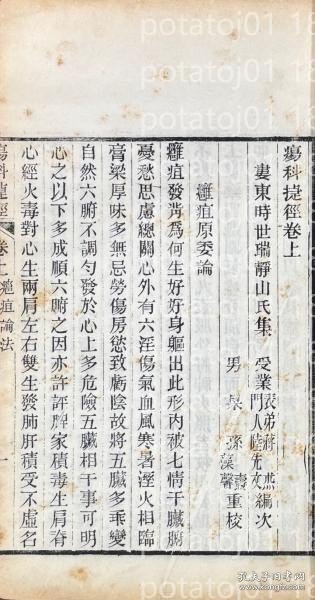 瘍科捷徑卷上
婁東時世瑞靜山氏集 受業表弟蔣杰 門人陸先文編次
男泉 孫藻馨壽重校
癰疽原委論
癰疽發背爲何生好好身軀出此形內被七情干臟腑
憂愁思慮總關心外有六淫傷氣血風寒暑溼火相臨
膏粱厚味多無忌勞傷房慾致虧陰故將五臟多乖變
自然六腑不調勻發於心上多危險五臟相干事可明
心之以下多成順六腑之因亦許評脾家積毒生肩脊
心經火毒對心生兩肩左右雙生發肺肝積受不虛名
瘍科捷徑 卷上 癰疽論法 一
potatoj01 18
孔夫子旧书网